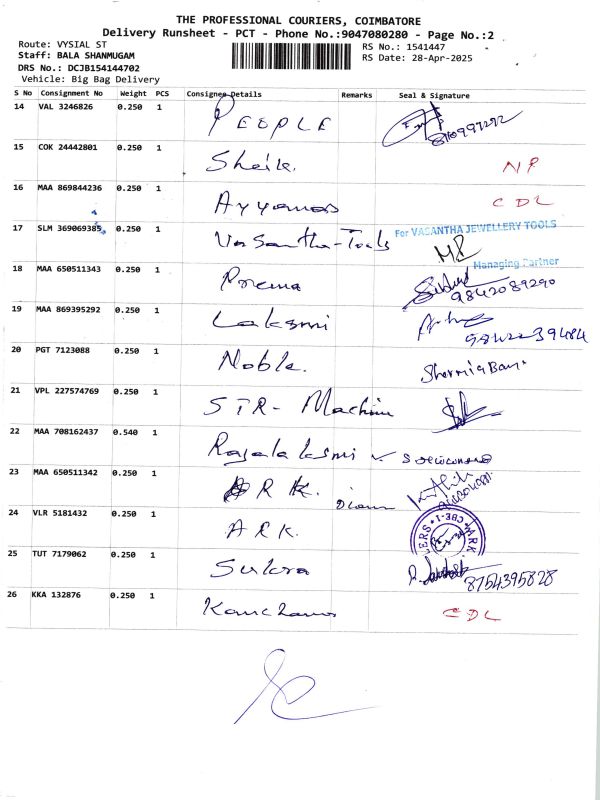 THE PROFESSIONAL COURIERS, COIMBATORE
Delivery Runsheet - PCT - Phone No.:9047080280 - Page No.:2
Route: VYSIAL ST
RS No.: 1541447
Staff: BALA SHANMUGAM
RS Date: 28-Apr-2025
DRS No.: DCJB154144702
Vehicle: Big Bag Delivery
S No Consignment No Weight PCS Consignee Details Remarks Seal & Signature
14 VAL 3246826 0.250 1 PEOPLE
15 COK 24442801 0.250 1 Sheik. NP
16 MAA 869844236 0.250 1 Ayyanars CDL
17 SLM 369069385 0.250 1 Vasantha-Tools For VASANTHA JEWELLERY TOOLS
Managing Partner
18 MAA 650511343 0.250 1 Prema 9842089290
19 MAA 869395292 0.250 1 Laksmi
20 PGT 7123088 0.250 1 Noble.
21 VPL 227574769 0.250 1 STR- Machine
22 MAA 708162437 0.540 1 Rajalaksmi
23 MAA 650511342 0.250 1 R K.
24 VLR 5181432 0.250 1 ARK.
25 TUT 7179062 0.250 1 Sukra 8754395828
26 KKA 132876 0.250 1 CDL